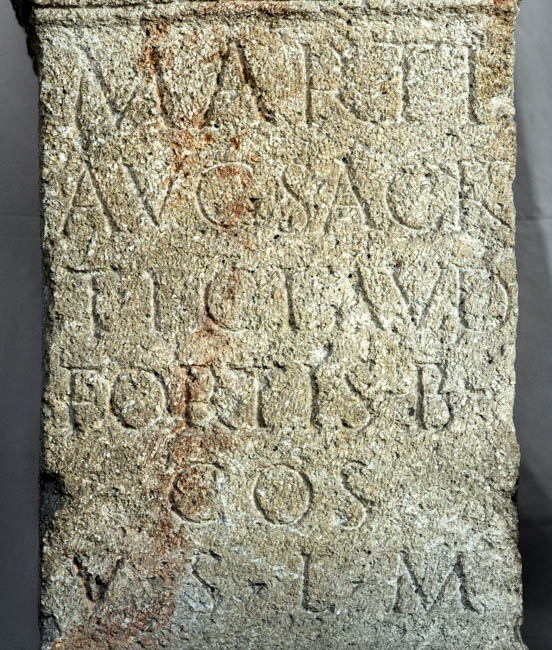 MARTI
AVG SACR
TI CLAVD
FORTIS · B ·
COS
V S · L · M